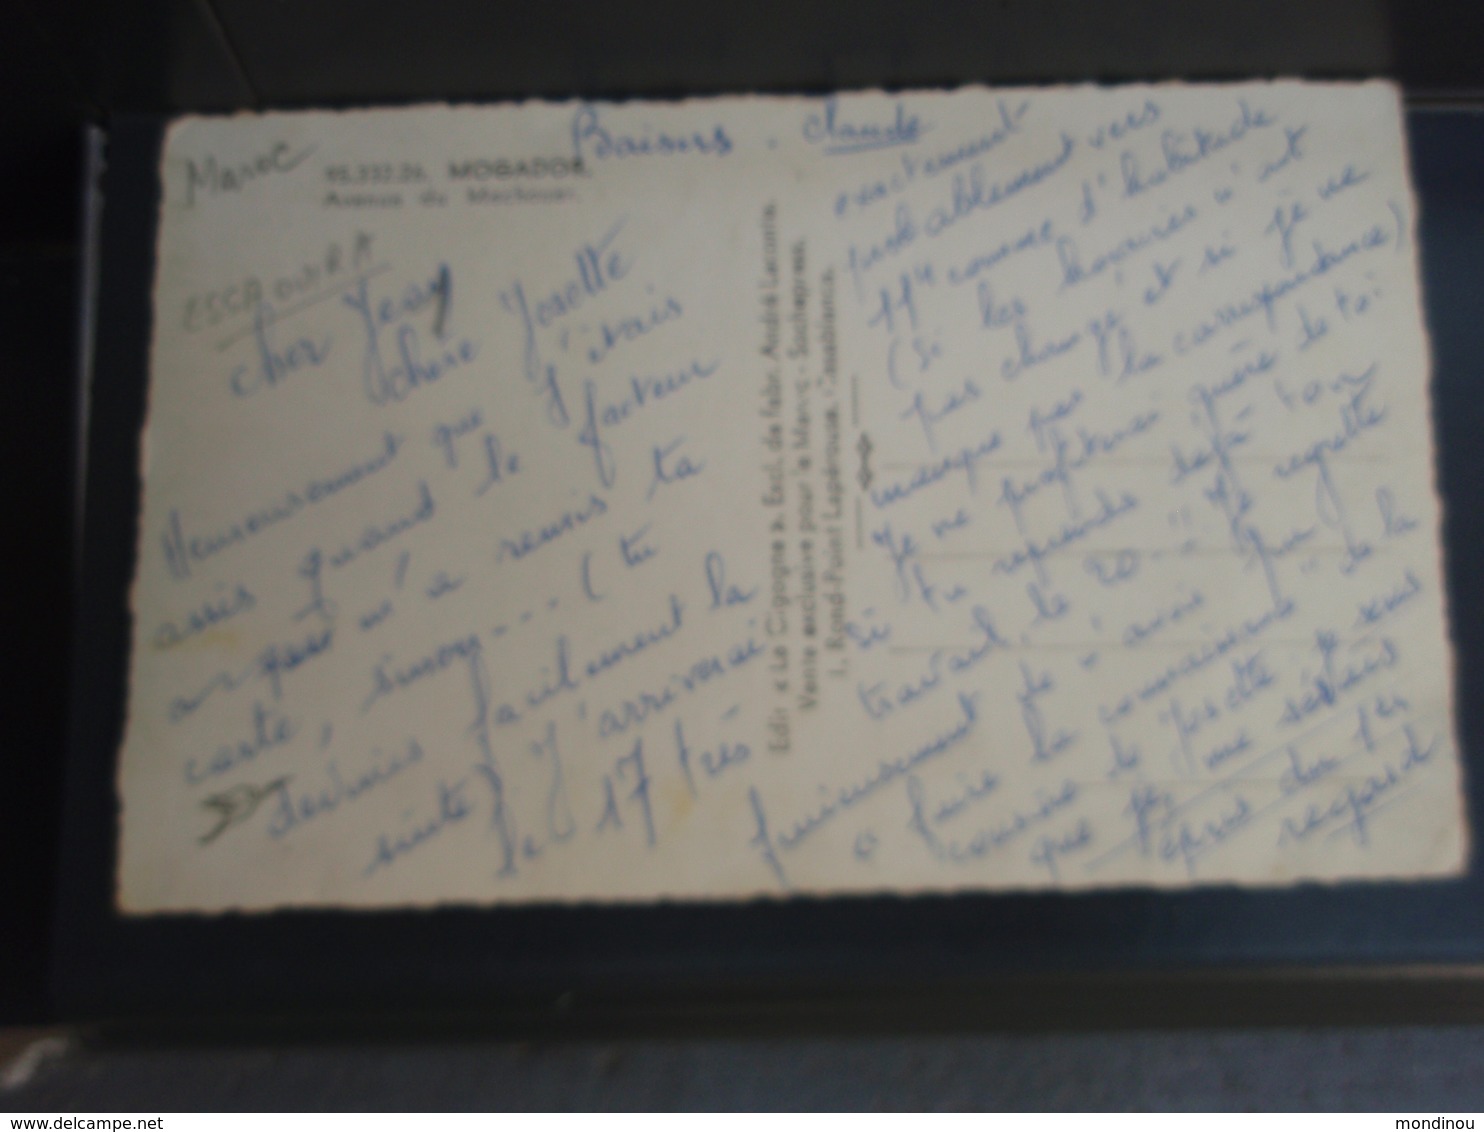 Maroc
95.337.26. MOGADOR.
Avenue du Mechouar.
ESSAOUIRA
Cher Jean
chère Josette
Heureusement que j'étais
assis quand le facteur
m'a remis ta
carte, sinon... (tu
devines facilement la
suite) J'arriverai
le 17 très
Edit « La Cigogne ». Excl. de fabr. André Leconte.
Vente exclusive pour le Maroc - Sochepress.
1, Rond-Point Lapérouse, Casablanca.
Baisers. Claude
exactement
probablement vers
11h comme d'habitude
(si les horaires n'ont
pas changé et si je ne
manque pas la correspondance)
Je ne profiterai guère de toi
si tu reprends déjà ton
travail le 20... Je regrette
furieusement de n'avoir pu
faire la connaissance de la
cousine de Josette je sens
que je me serais
épris du 1er
regard
mondinou